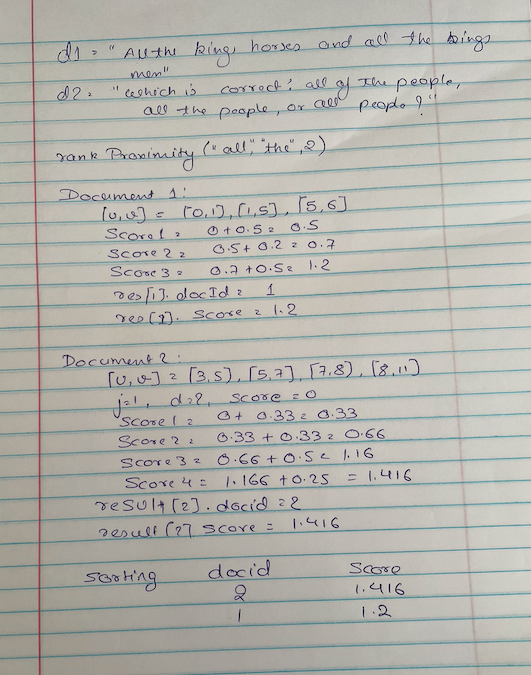 d1 = "All the kings horses and all the kings
men"
d2 = "which is correct: all of the people,
all the people, or all people ?"
rank Proximity ("all", "the", 2)
Document 1:
[u,v] = [0,1], [1,5], [5,6]
Score 1 = 0+0.5 = 0.5
Score 2 = 0.5+0.2 = 0.7
Score 3 = 0.7+0.5 = 1.2
res[1]. docId = 1
res[1]. Score = 1.2
Document 2:
[u,v] = [3,5], [5,7], [7,8), [8,11)
j=1, d=2, score = 0
Score 1 = 0+ 0.33 = 0.33
Score 2 = 0.33 + 0.33 = 0.66
Score 3 = 0.66 + 0.5 = 1.16
Score 4 = 1.166 +0.25 = 1.416
result[2]. docid = 2
result[2] score = 1.416
sorting docid Score
2 1.416
1 1.2